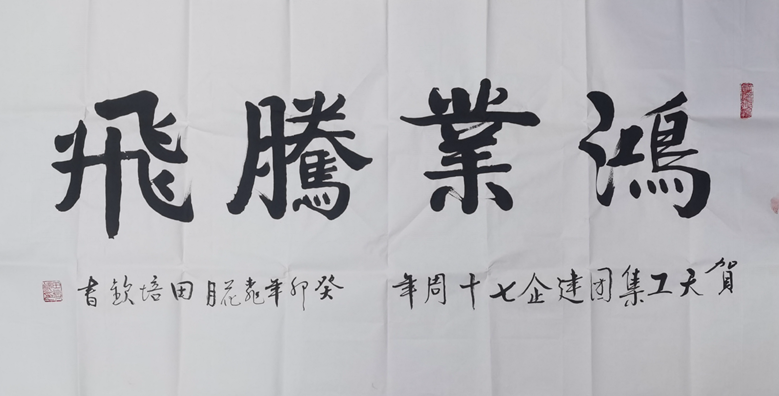 鴻業騰飛
賀天工集団建企七十周年 癸卯年花月田培欽書